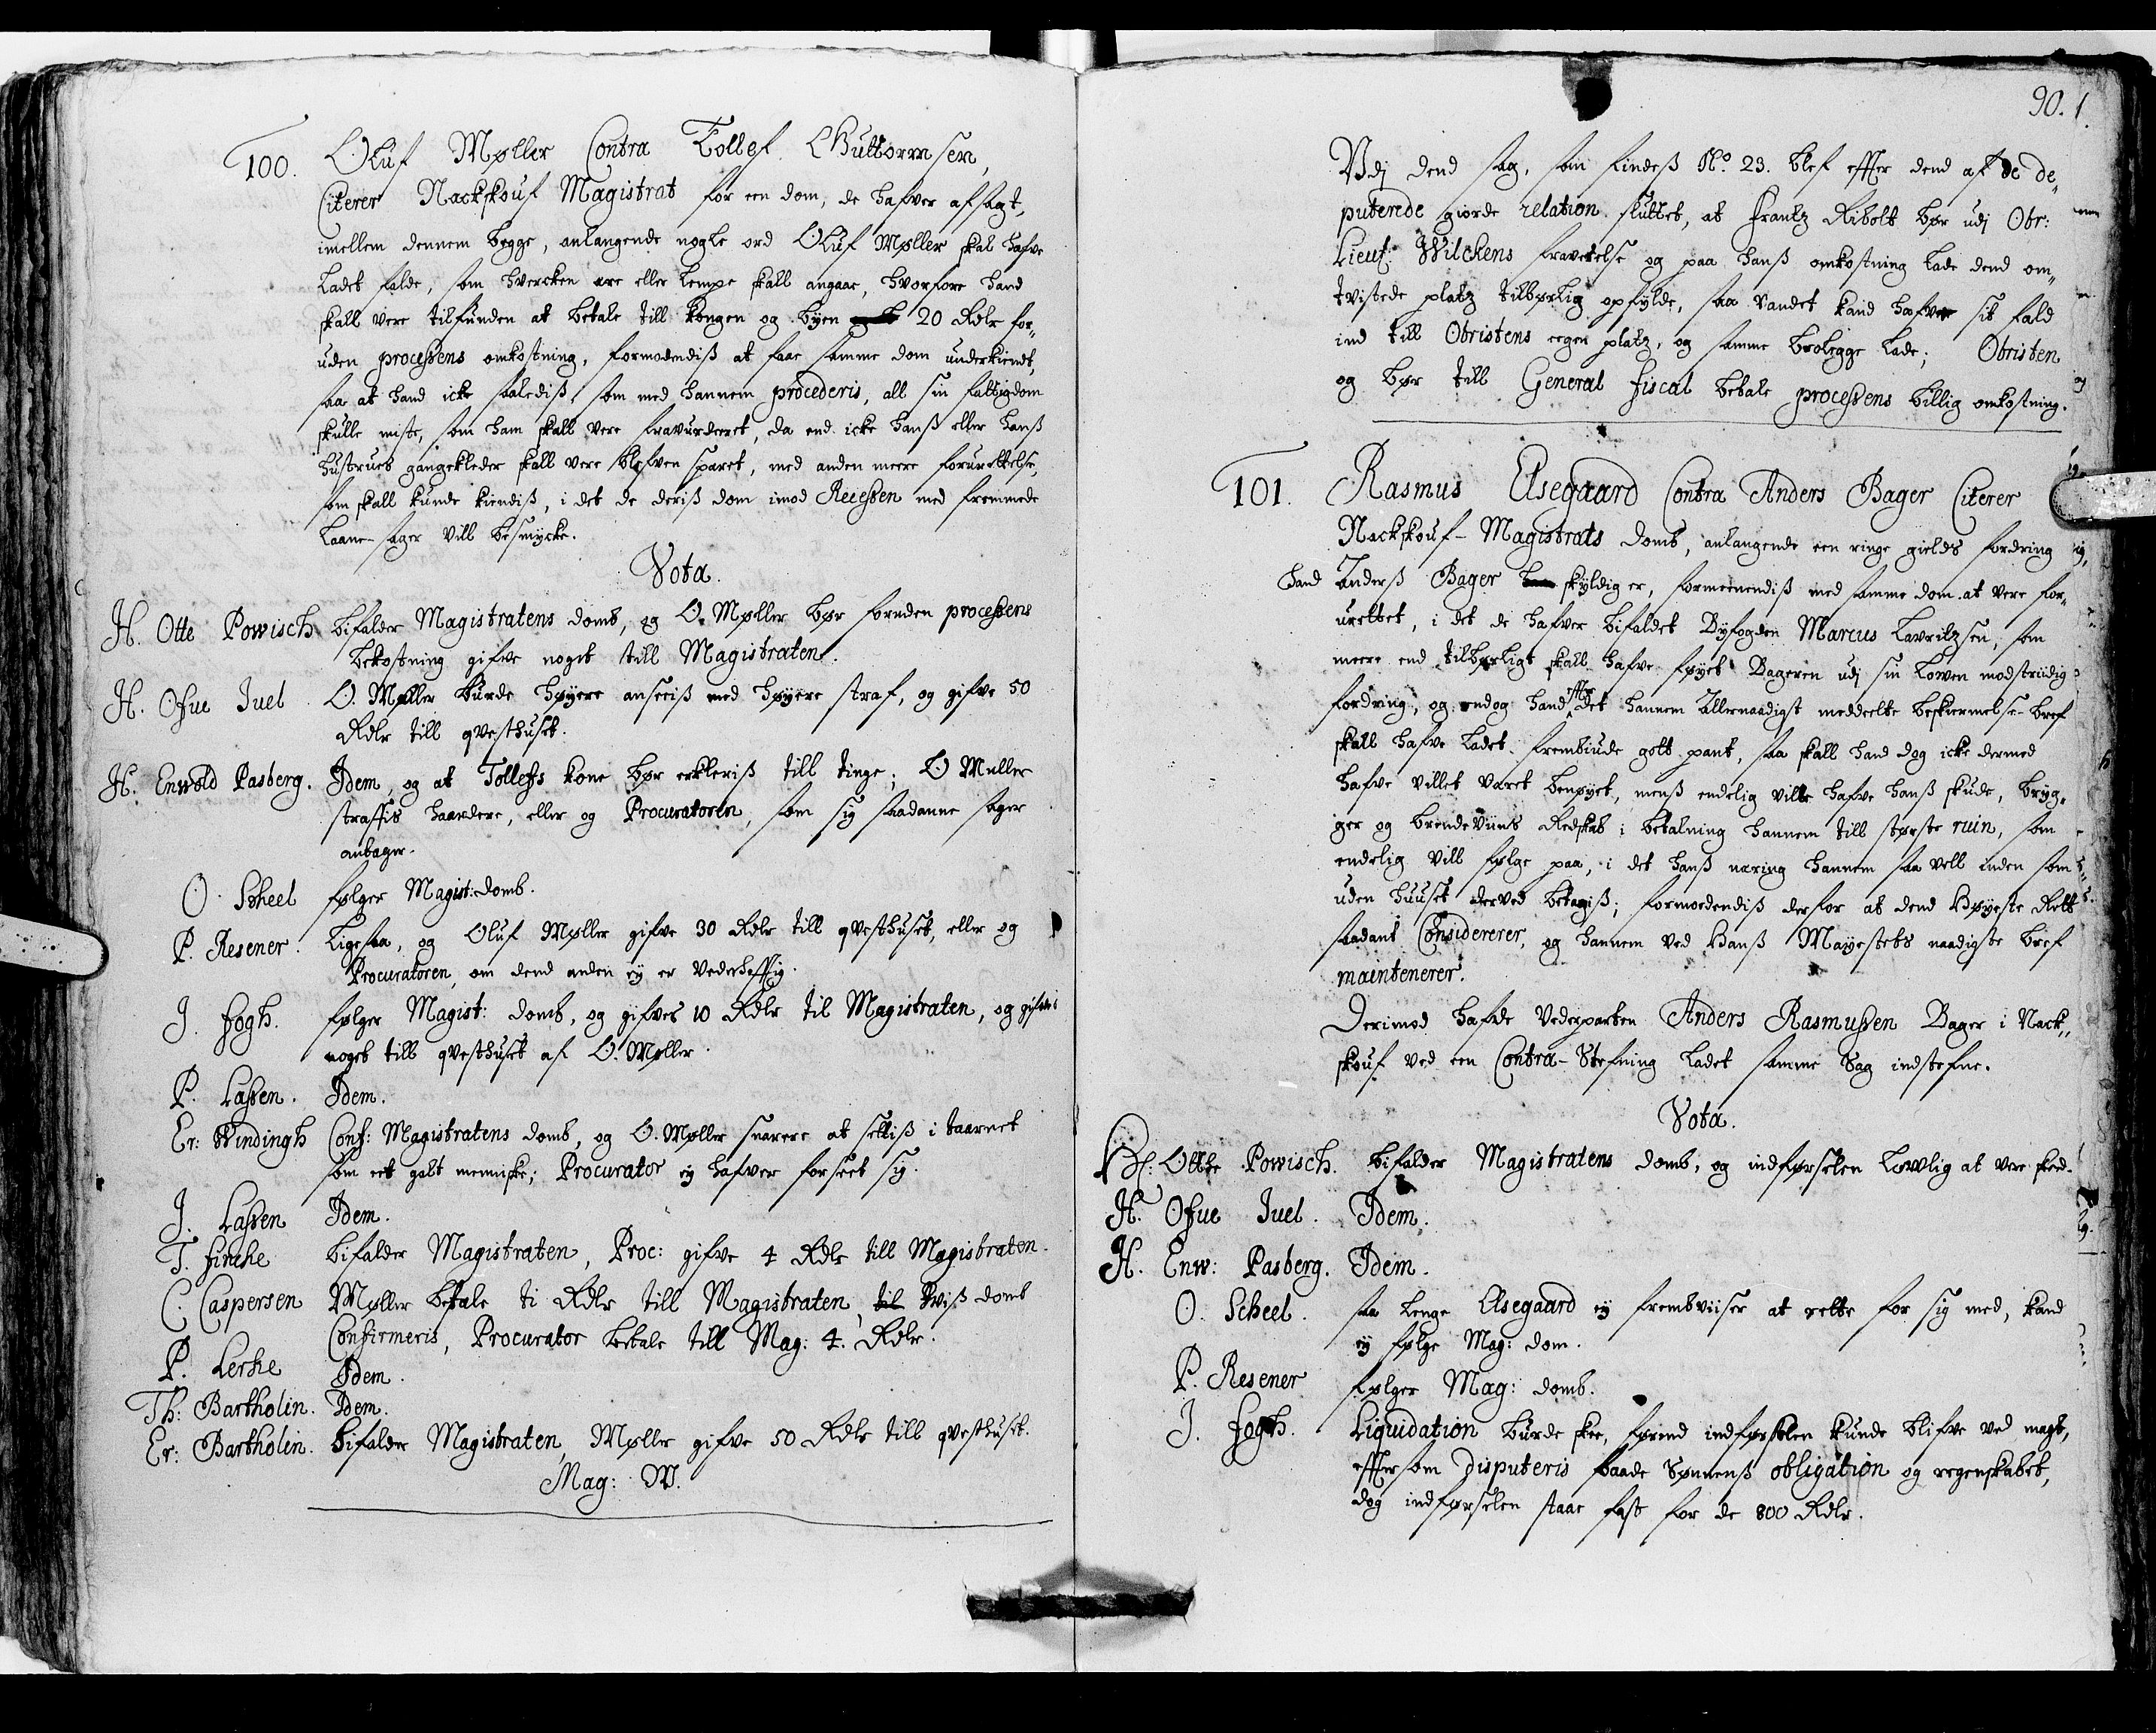 100. Oluf Møller Contra Tollef Guttormsen,
Citerer Nackskouf Magistrat for een dom, de hafver afsagt,
imellem dennem begge, anlangende nogle ord Oluf Møller skal hafve
ladet falde, som hvercken ære eller lempe skall angaae, hvorfore hand
skall vere tilfunden at betale till Kongen og byen 20 Rdlr for-
uden processens omkostning, formodendiß at faae samme dom underkiendt,
saa at hand icke saalediß, som med hannem procederis, all sin fattigdom
skulle miste, som ham skall vere fravurderet, da end icke hanß eller hanß
hustrues gangkleder skall vere blefven sparet, med anden meere forurettelse,
som skall kunde kiendiß, i det de deriß dom imod Recessen med fremmede
Laane-sager vill besmycke.
Vota.
H. Otte Powisch bifalder Magistratens domb, og O. Møller bør foruden processens
bekostning gifve noget till Magistraten.
H. Ofue Juel. O. Møller burde høyere anseeiß med høyere straf, og gifve 50
Rdlr till qvesthuset.
H. Enwold Pasberg. Idem, og at Tollefs kone bør erkleriß till tinge; O Muller
straffis haardere, eller og Procuratoren, som sig saadanne sager
antager.
O. Scheel følger Magist: domb.
P. Resener. Ligesaa, og Oluf Møller gifve 30 Rdlr till qvesthuset, eller og
Procuratoren, om dend anden ey er vederheftig.
J. Fogh. følger Magist: domb, og gifves 10 Rdlr til Magistraten, og gifves
noget till qvesthuset af O. Møller.
P. Lassen. Idem.
Er: Windingh Conf: Magistratens domb, og O. Møller snarere at settiß i taarnet
som eet galt menniske; Procurator ey hafver forseet sig.
J. Lassen Idem.
T. Fincke bifalder Magistraten, Proc: gifve 4 Rdlr till Magistraten.
C. Caspersen Møller betale ti Rdlr till Magistraten, til hviß domb
Confirmeris, Procurator betale till Mag: 4. Rdlr.
P. Lerke Idem.
Th: Bartholin. Idem.
Er: Bartholin. bifalder Magistraten, Møller gifve 50 Rdlr till qvesthuset.
Mag: W.
90.
Udj dend sag, som findeß No. 23. blef efter dend af de de-
puterede giorde relation sluttet, at Frantz Ribolt bør udj Obr:
Lieut: Wilckens fraverelse og paa hanß omkostning lade dend om-
tvistede platz tilbørlig opfylde, saa vandet kand hafve sit fald
ind till Obristens egen platz, og samme brolegge lade; Obristen
og bør till General Fiscal betale processens billig omkostning.
101. Rasmus Elsegaard Contra Anders Bager Citerer
Nackskouf-Magistrats domb, anlangende een ringe gields fordring
hand Anderß Bager skyldig er, formeenendiß med samme dom at vere for-
urettet, i det de hafver bifaldet Byfogden Marcus Lavritzsen, som
meere end tilbørligt skall hafve føyet Bageren udj sin Lowen modstridig
fordring, og endog hand efter det hannem Allernaadigst meddeelte beskiermelse-bref
skall hafve ladet frembiude gott pant, saa skall hand dog icke dermed
hafve villet været benøyet, menß endelig ville hafve hanß skude, bryg-
ger og brendeviins Redskab i betalning hannem till største ruin, som
endelig vill følge paa, i det hanß næring hannem saa vell inden som
uden huuset derved betagiß; formodendiß derfor at dend Høyeste Rett
saadant Considererer, og hannem ved Hanß Mayestets naadigste bref
maintenerer.
Derimod hafde Vederparten Anders Rasmussen Bager i Nack-
skouf ved een Contra-Stefning ladet samme Sag indstefne.
Vota.
H: Otte Powisch. bifalder Magistratens domb, og indførselen lowlig at vere skeed.
H. Ofue Juel. Idem.
H. Enw: Pasberg. Idem.
O. Scheel. saa lenge Elsegaard ey frembviiser at rette for sig med, kand
ey følge Mag: dom.
P. Resener følger Mag: domb.
J. Fogh. Liquidation burde skee, førend indførselen kunde blifve ved magt,
eftersom disputeris baade Sønnenß obligation og regenskabet,
dog indførselen staae fast for de 800 Rdlr.